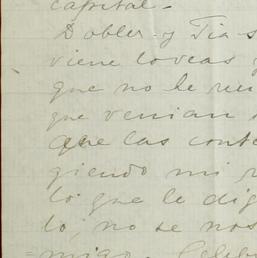 capital.-
Dobler y Tia s
viene loveas y
que no le
que venian s
que las conte
giendo mi r
lo que le dig
lo, no se nos
=migo.